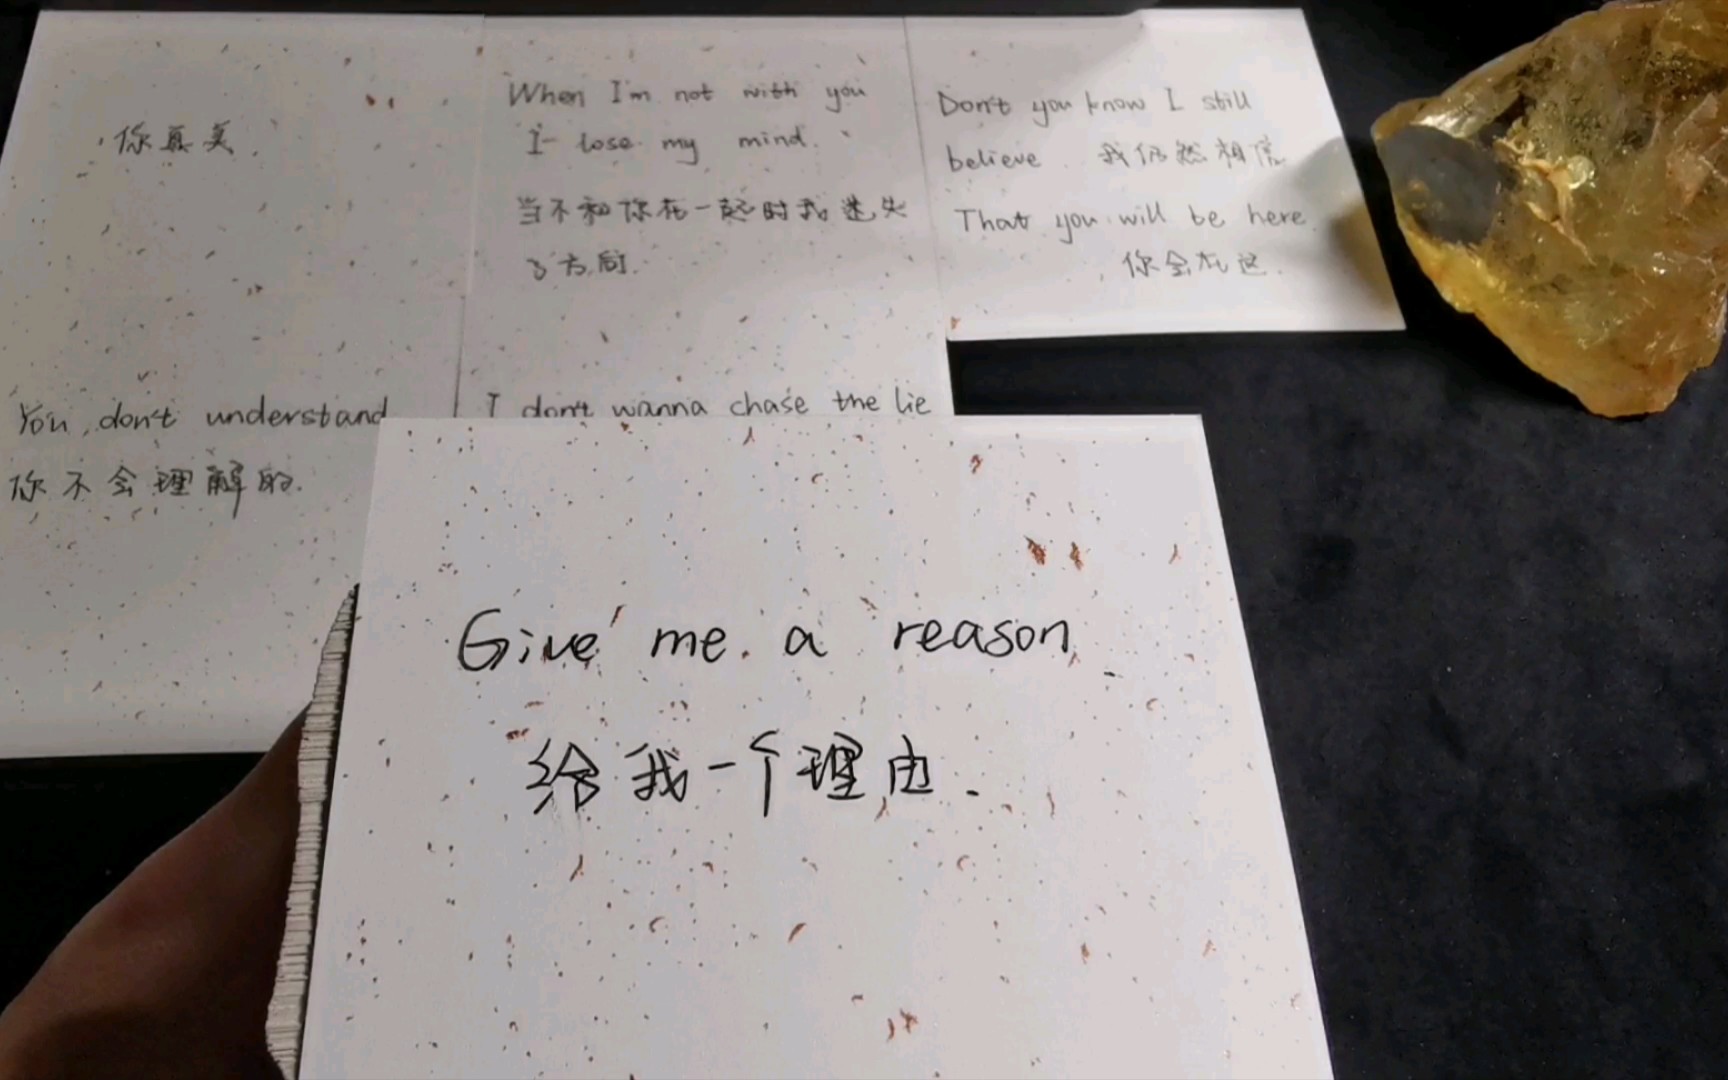 你真美.
When I'm not with you
I lose my mind.
当不和你在一起时我迷失
了方向.
Don't you know I still
believe 我仍然相信
That you will be here.
你会在这.
You don't understand
你不会理解的.
I don't wanna chase the lie
Give me a reason
给我一个理由.